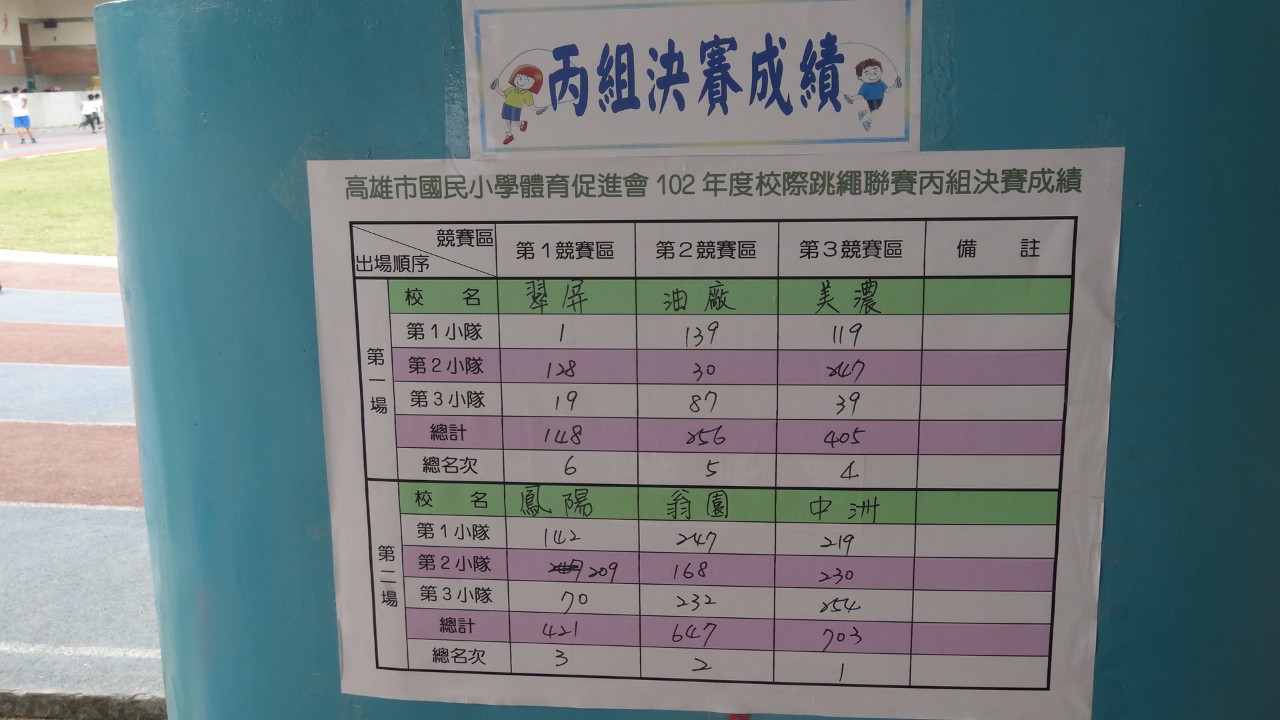 丙組決賽成績
高雄市國民小學體育促進會 102 年度校際跳繩聯賽丙組決賽成績
競賽區 出場順序 第1競賽區 第2競賽區 第3競賽區 備 註
第一場
校 名 翠屏 油廠 美濃
第1小隊 1 139 119
第2小隊 128 30 247
第3小隊 19 87 39
總計 148 256 405
總名次 6 5 4
第二場
校 名 鳳陽 翁園 中洲
第1小隊 142 247 219
第2小隊 209 168 230
第3小隊 70 232 254
總計 421 647 703
總名次 3 2 1